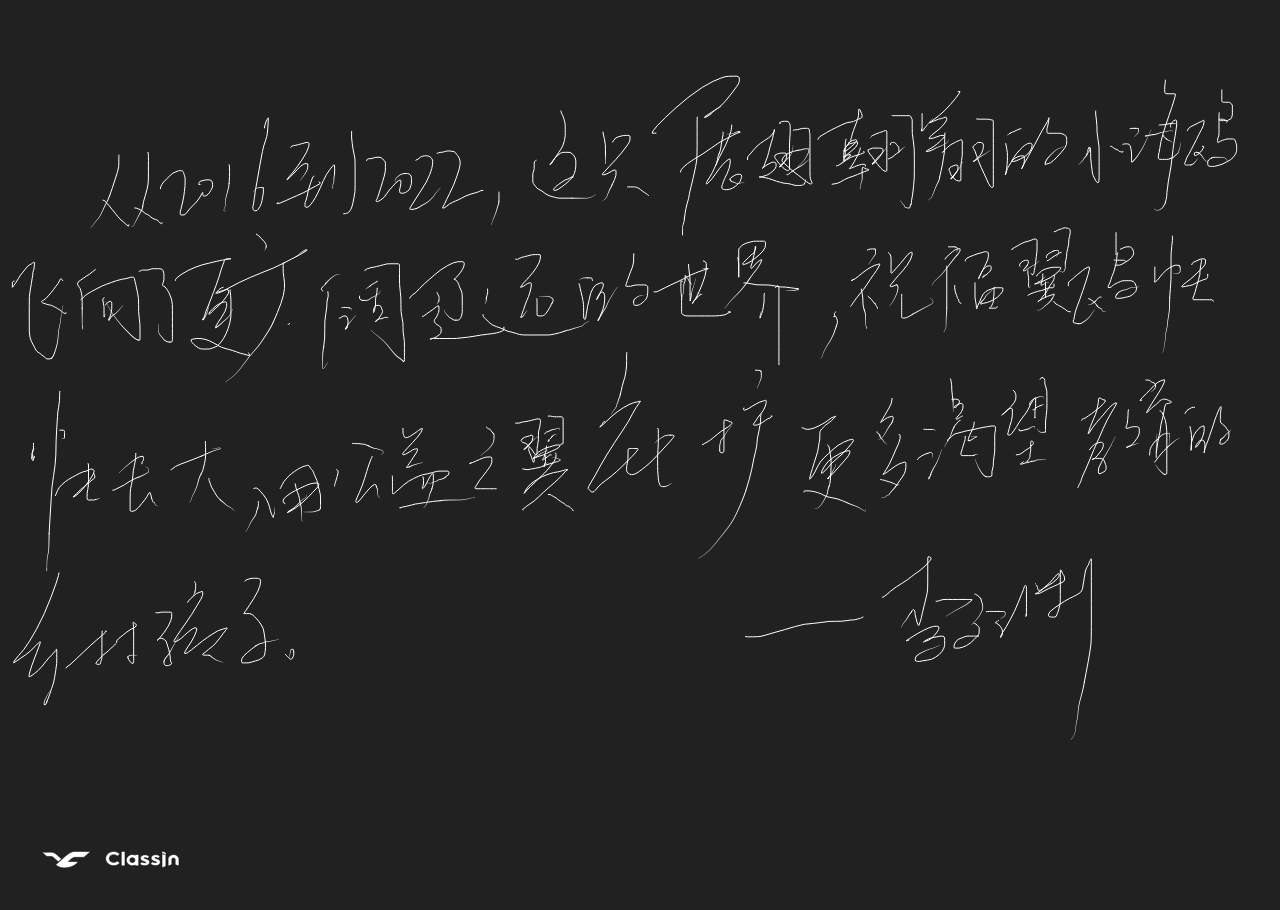 从2016到2022，这只展翅翱翔的小海鸥
飞向了更广阔更远的世界，祝福翼鸥快
快长大，用公益之翼庇护更多渴望教育的
乡村孩子。
——李
ClassIn